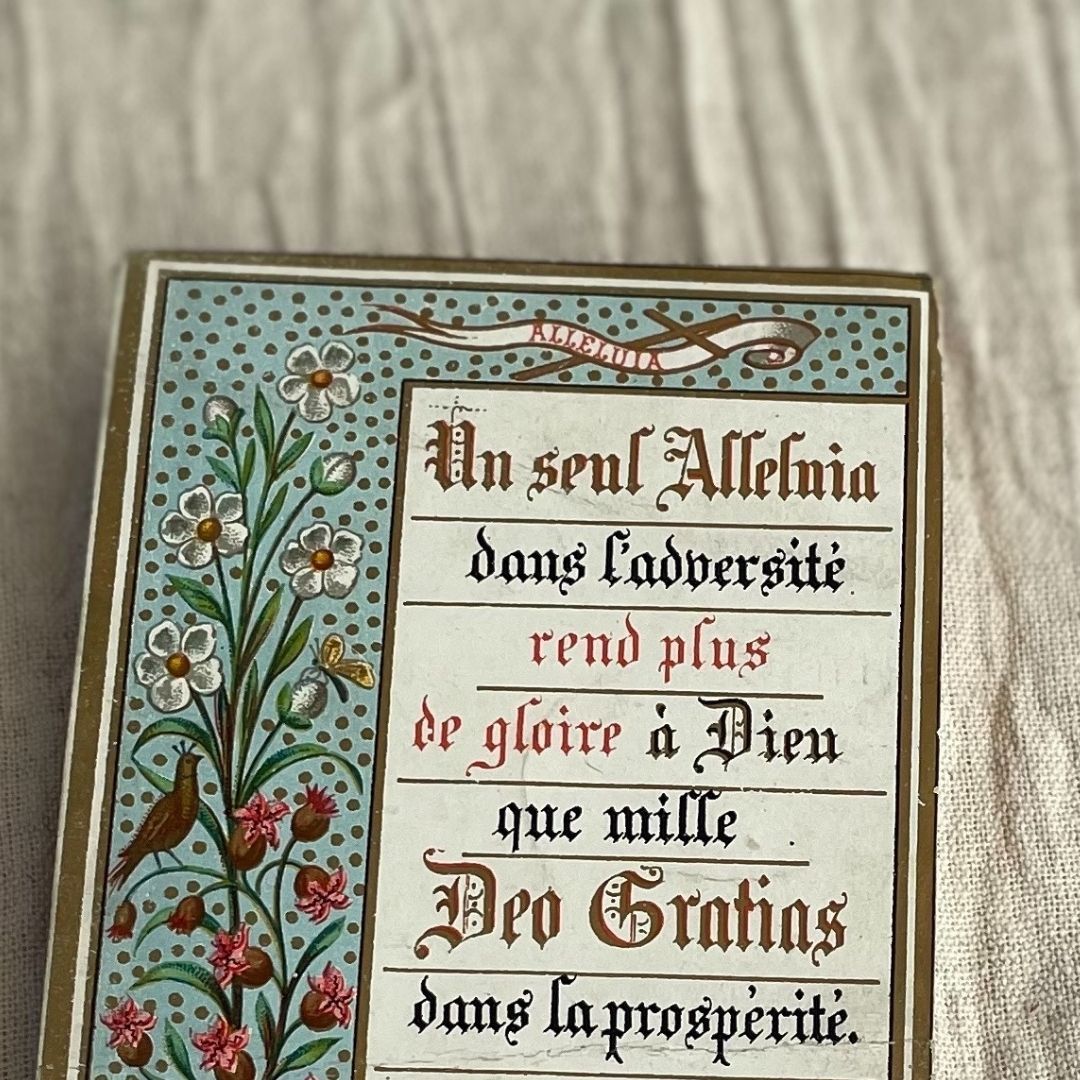 ALLELUIA
Un seul Alleluia
dans l'adversité
rend plus
de gloire à Dieu
que mille
Deo Gratias
dans la prospérité.